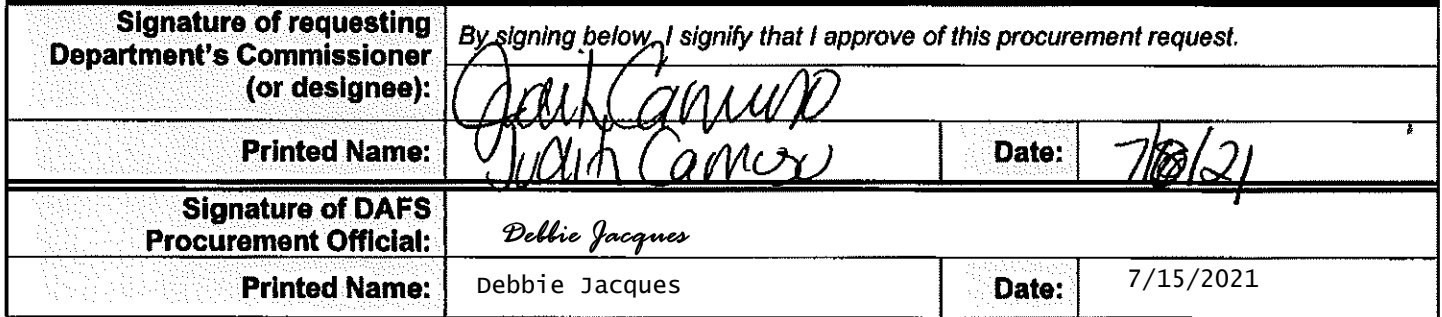 Signature of requesting
Department's Commissioner
(or designee):
By signing below, I signify that I approve of this procurement request.
Judith Camuso
Printed Name:
Judith Camuso
Date:
7/8/21
Signature of DAFS
Procurement Official:
Debbie Jacques
Printed Name:
Debbie Jacques
Date:
7/15/2021